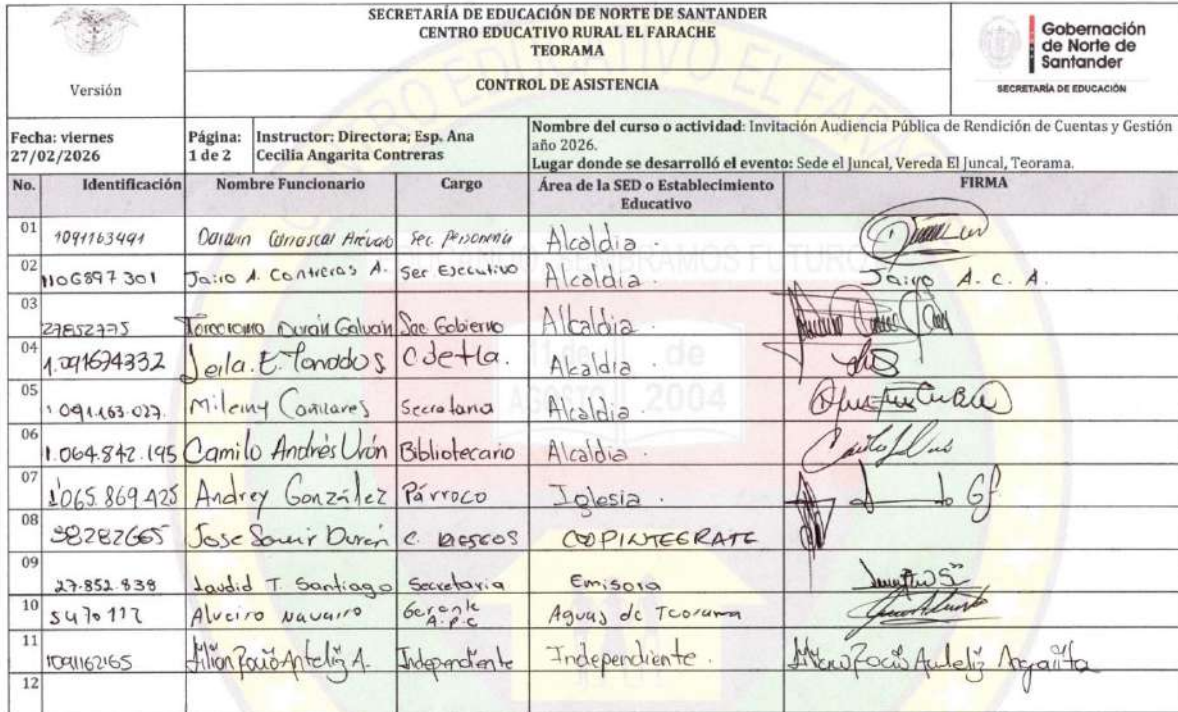 SECRETARÍA DE EDUCACIÓN DE NORTE DE SANTANDER
CENTRO EDUCATIVO RURAL EL FARACHE
TEORAMA
Gobernación
de Norte de
Santander
SECRETARÍA DE EDUCACIÓN
Versión
CONTROL DE ASISTENCIA
Fecha: viernes
27/02/2026
Página:
1 de 2
Instructor: Directora; Esp. Ana
Cecilia Angarita Contreras
Nombre del curso o actividad: Invitación Audiencia Pública de Rendición de Cuentas y Gestión
año 2026.
Lugar donde se desarrolló el evento: Sede el Juncal, Vereda El Juncal, Teorama.
No. Identificación Nombre Funcionario Cargo Área de la SED o Establecimiento Educativo FIRMA
01 1091163491 Darwin Carrascal Arévalo Sec. Personería Alcaldia.
02 1106897301 Jairo A. Contreras A. Sec Ejecutivo Alcaldia. Jairo A. C. A.
03 27852775 Torcoroma Durán Galván Sec Gobierno Alcaldia.
04 1.091674332 Leila. E. Alcaldia.
05 1091.163.027. Mileiny Secretaria Alcaldia.
06 1.064.842.195 Camilo Andrés Urón Bibliotecario Alcaldia.
07 1065.869.425 Andrey González Párroco Iglesia.
08 Jose Durán C.
09 27.852.838 T. Santiago Secretaria Emisora
10 5470117 Alveiro Navarro Gerente A.P.C Aguas de Teorama
11 1091162165 A. Independiente Independiente.
12
EDUCANDO, SEMBRAMOS FUTURO
11 de
de
AGOSTO
2004